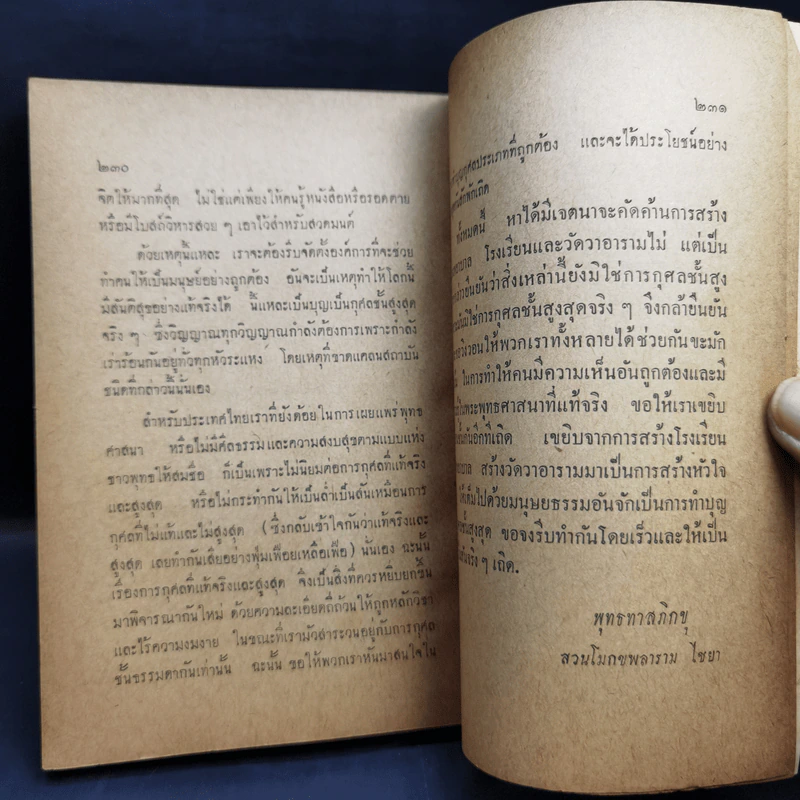 ๒๓๐
จิตให้มากที่สุด ไม่ใช่แต่เพียงให้คนรู้หนังสือหรือรอดตาย
หรือมีโบสถ์วิหารสวย ๆ เอาไว้สำหรับสวดมนต์
ด้วยเหตุนี้แหละ เราจะต้องรีบจัดตั้งองค์การที่จะช่วย
ทำคนให้เป็นมนุษย์อย่างถูกต้อง อันจะเป็นเหตุทำให้โลกนี้
มีสันติสุขอย่างแท้จริงได้ นี้แหละเป็นบุญเป็นกุศลชั้นสูงสุด
จริง ๆ ซึ่งวิญญาณทุกวิญญาณกำลังต้องการเพราะกำลัง
เร่าร้อนกันอยู่ทั่วทุกหัวระแหง โดยเหตุที่ขาดแคลนสถาบัน
ชนิดที่กล่าวนี้นั่นเอง
สำหรับประเทศไทยเราที่ยังด้อยในการเผยแพร่พุทธ
ศาสนา หรือไม่มีศีลธรรมและความสงบสุขตามแบบแห่ง
ชาวพุทธให้สมชื่อ ก็เป็นเพราะไม่นิยมต่อการกุศลที่แท้จริง
และสูงสุด หรือไม่กระทำกันให้เป็นล่ำเป็นสันเหมือนการ
กุศลที่ไม่แท้และไม่สูงสุด (ซึ่งกลับเข้าใจกันว่าแท้จริงและ
สูงสุด เลยทำกันเสียอย่างฟุ่มเฟือยเหลือเฟือ) นั่นเอง ฉะนั้น
เรื่องการกุศลที่แท้จริงและสูงสุด จึงเป็นสิ่งที่ควรหยิบยกขึ้น
มาพิจารณากันใหม่ ด้วยความละเอียดถี่ถ้วนให้ถูกหลักวิชา
และไร้ความงมงาย ในขณะที่เรามัวสาระวนอยู่กับการกุศล
ชั้นธรรมดากันเท่านั้น ฉะนั้น ขอให้พวกเราหันมาสนใจใน
๒๓๑
บุญกุศลประเภทที่ถูกต้อง และจะได้ประโยชน์อย่าง
ทั้งหมดนี้ หาได้มีเจตนาจะคัดค้านการสร้าง
โรงเรียนและวัดวาอารามไม่ แต่เป็น
ยืนยันว่าสิ่งเหล่านี้ยังมิใช่การกุศลชั้นสูง
มิใช่การกุศลชั้นสูงสุดจริง ๆ จึงกล้ายืนยัน
วิงวอนให้พวกเราทั้งหลายได้ช่วยกันขะมัก
ในการทำให้คนมีความเห็นอันถูกต้องและมี
ในพระพุทธศาสนาที่แท้จริง ขอให้เราเขยิบ
กันอีกทีเถิด เขยิบจากการสร้างโรงเรียน
สร้างวัดวาอารามมาเป็นการสร้างหัวใจ
เต็มไปด้วยมนุษยธรรมอันจักเป็นการทำบุญ
ชั้นสูงสุด ขอจงรีบทำกันโดยเร็วและให้เป็น
จริง ๆ เถิด.
พุทธทาสภิกขุ
สวนโมกขพลาราม ไชยา